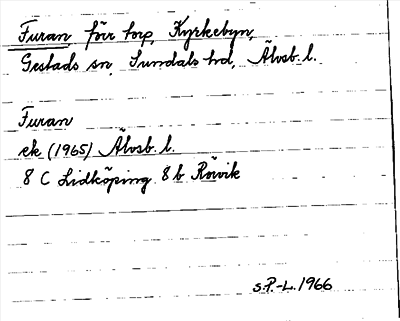 Furan, förr torp, Kyrkebyn,
Gestads sn, Sundals hd, Älvsb. l.
Furan
ek (1965) Älvsb. l.
8 C Lidköping 8 b Rövik
S.P.-L. 1966